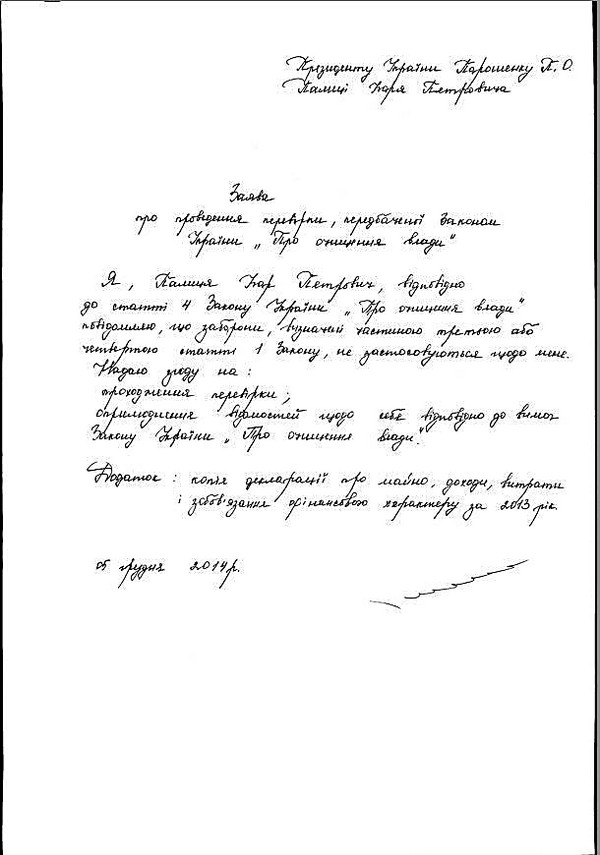 Президенту України Парошенку П.О.
Палиці Ігоря Петровича
Заява
про проведення перевірки, передбаченої Законом
України „Про очищення влади"
Я, Палиця Ігор Петрович, відповідно
до статті 4 Закону України „Про очищення влади"
повідомляю, що заборони, визначені частиною третьою або
четвертою статті 1 Закону, не застосовуються щодо мене.
Надаю згоду на:
проходження перевірки;
оприлюднення відомостей щодо себе відповідно до вимог
Закону України „Про очищення влади".
Додаток: копія декларації про майно, доходи, витрати
і зобов'язання фінансового характеру за 2013 рік.
05 грудня 2014р.